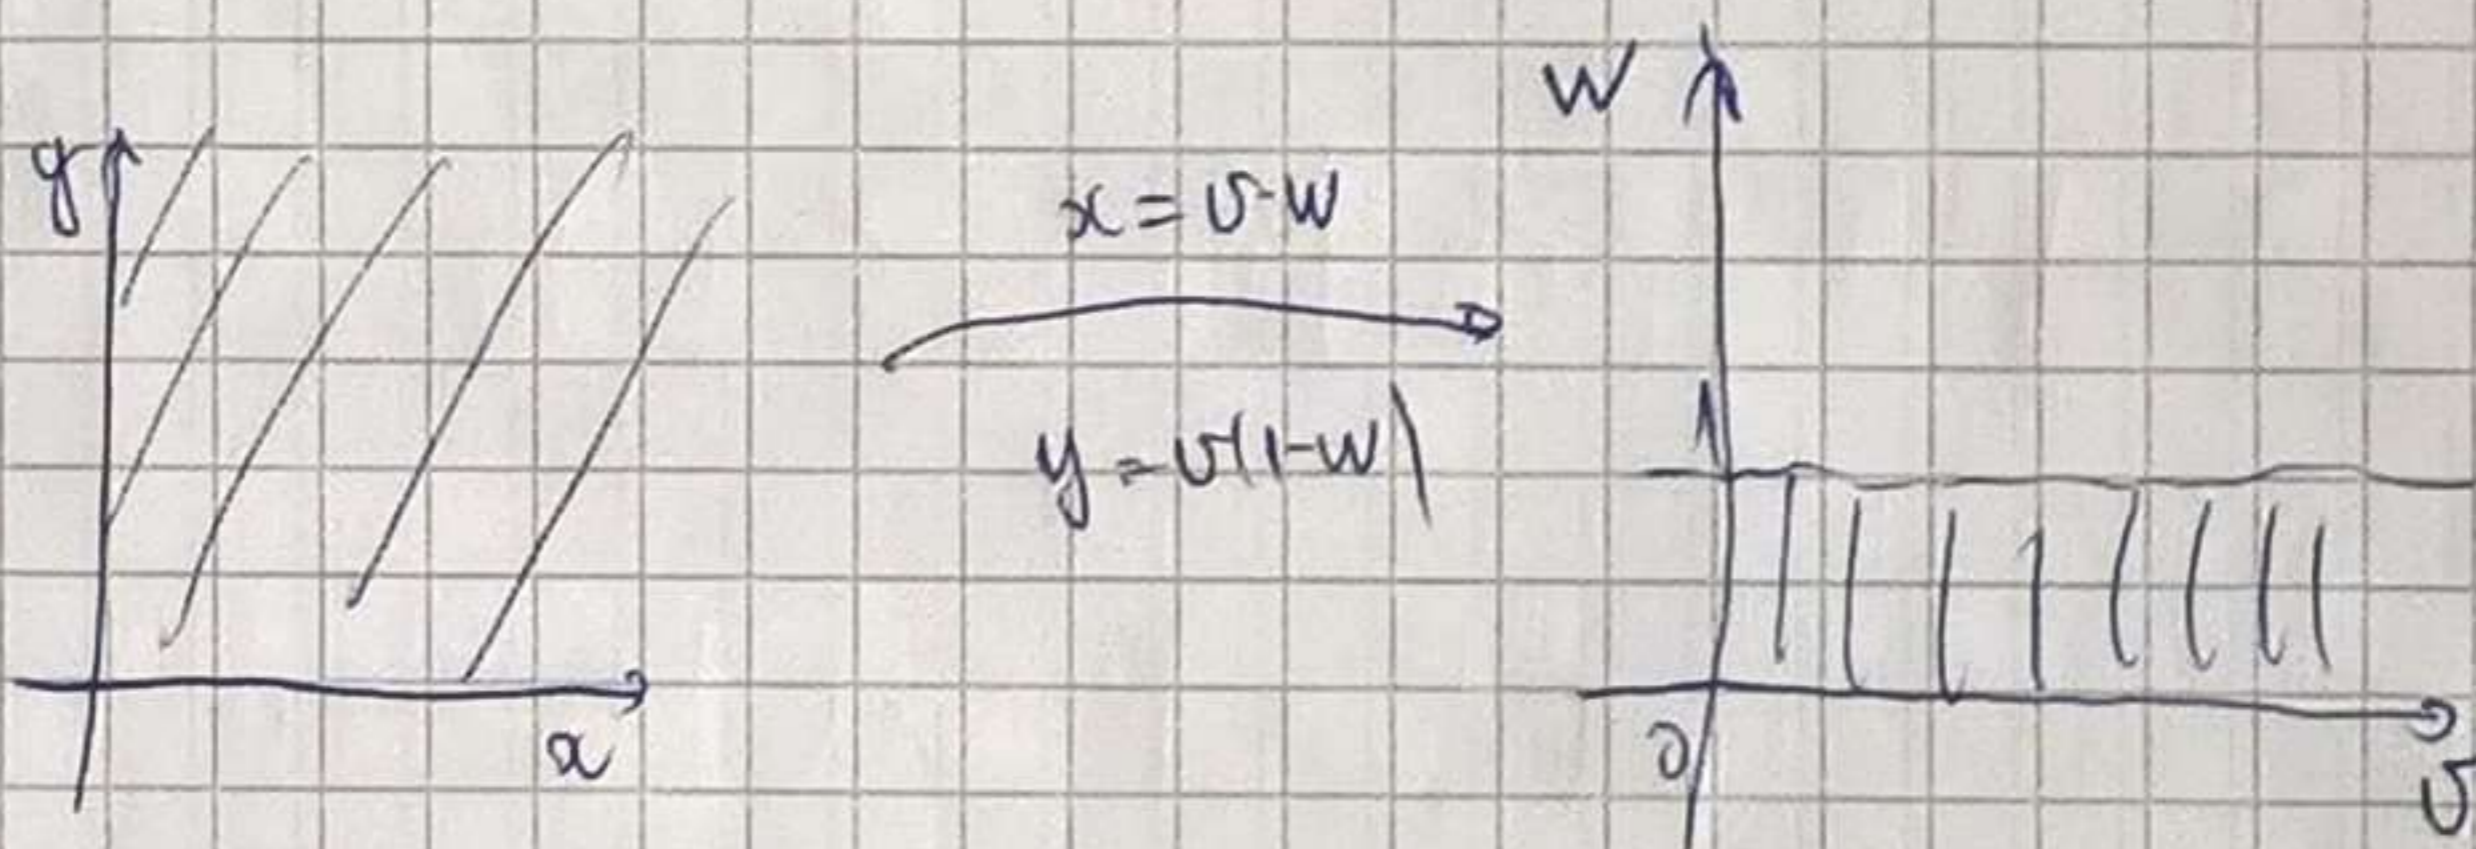 y
x
x = v·w
y = v(1-w)
w
1
0
v